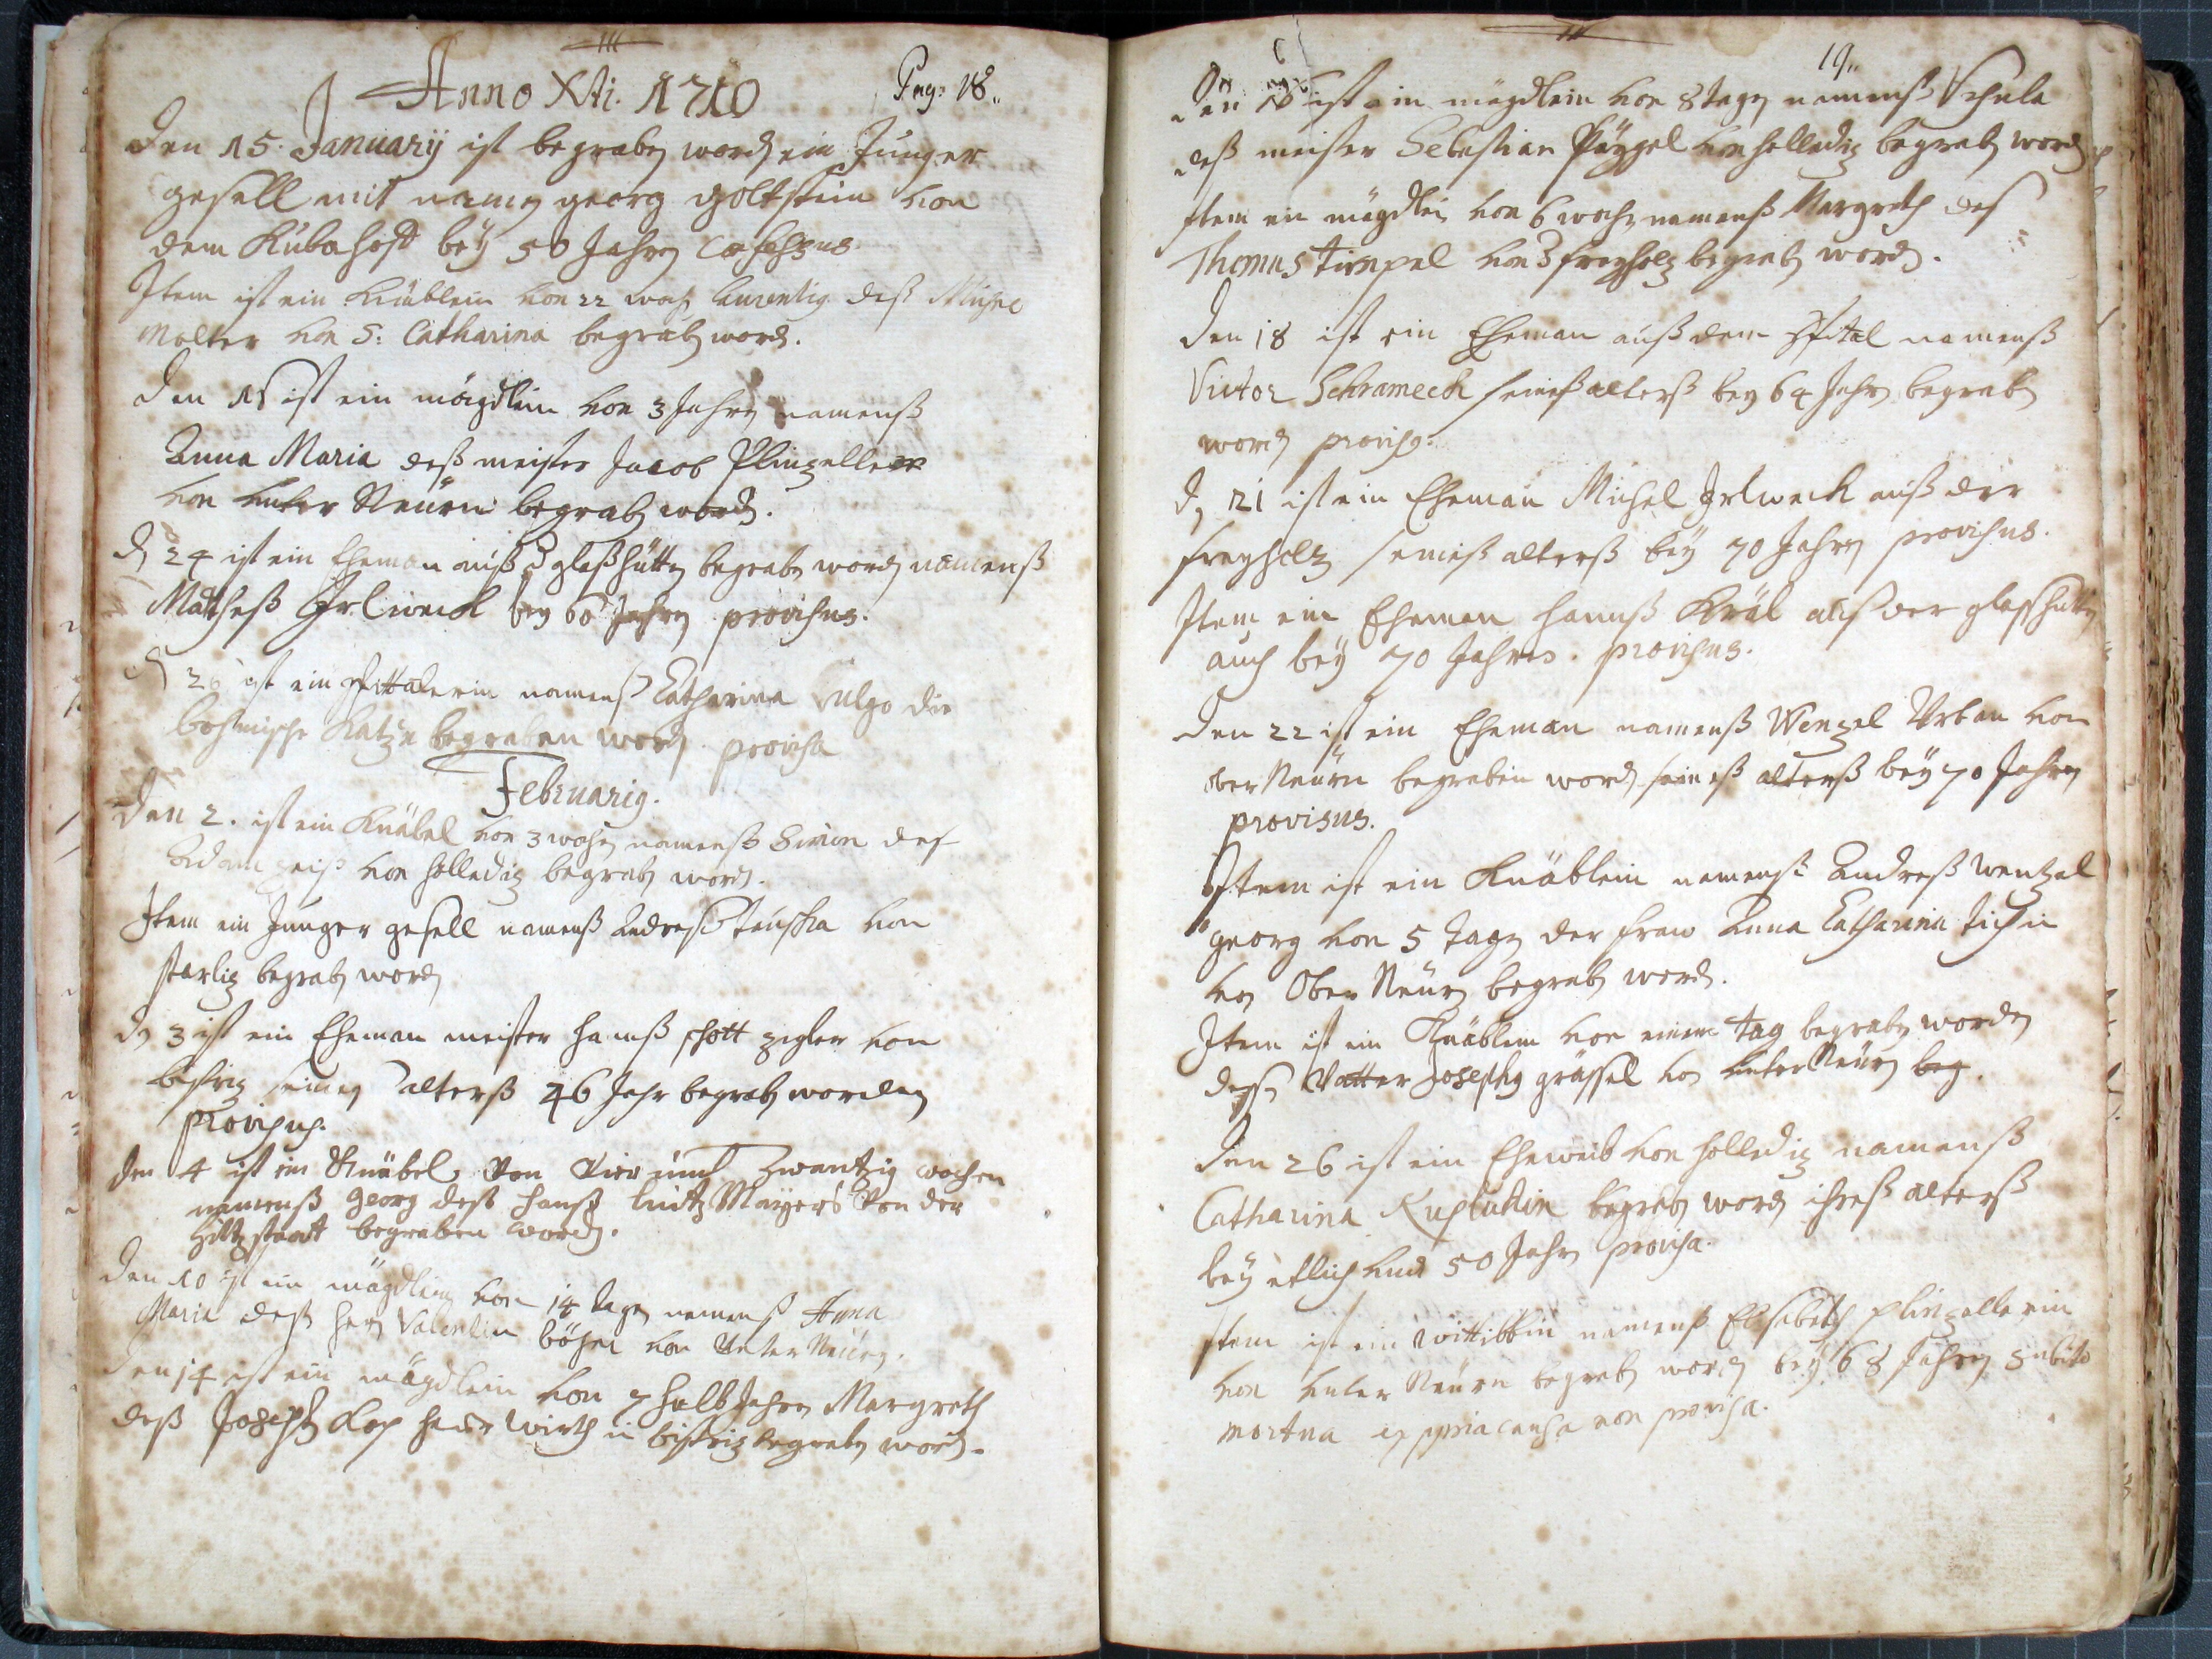 Anno Xti. 1710
Pag: 18.
Den 15. Januarÿ ist begraben word ein Junger
gesell mit namen georg goltstein von
dem bëy 50 Jahren
Item ist ein knäblein von 22 woch deß Michl
Molter von S: Catharina begrab word.
Den 15 ist ein mägdlein von 3 Jahren namenß
Anna Maria deß meister Jacob Plinzeller
von unter Neürn begrab word.
d 24 ist ein Eheman auß d glaßhütten begraben word namenß
Matheß Irlweck beÿ 60 Jahren provisus.
d 26 ist ein spittalerin namenß Catharina vulgo die
böhmische begraben word provisa
Februarig.
Den 2. ist ein Knäbel von 3 wochen namenß Simon deß
Adam von holledig begrab word.
Item ein Junger gesell namenß Andreß von
begrab word
dn 3 ist ein Eheman meister hanß schott zigler von
bistriz alterß 46 Jahr begrab worden
provisus.
den 4 ist ein Knäbel von vier und zwantzig wochen
namenß georg deß hanß Mayers von der
begraben word.
Den 10 ist ein mägdlein von 14 tagen namenß Anna
Maria deß hern Valentin böhm von Unter Neürn.
Den 14 ist ein mägdlein von 7 halb Jahren Margreth
deß Joseph wirth in bistriz begraben word.
19.
den ist ein mägdlein von 8 tagen namenß
deß meister Sebastian von holledig begrab word
Item ein mägdlein von 6 wochen namenß Margreth deß
Thomas timpel von freyholz begrab word.
Den 18 ist ein Eheman auß dem spital namenß
Victor Schrameck seineß alterß bey 64 Jahr begrab
word provisg.
d 21 ist ein Eheman Michel Irlweck auß der
freyholz seineß alterß bëy 70 Jahren provisus.
Item ein Eheman hannß Kräl auß der glaßhütten
auch bëy 70 Jahren. provisus.
Den 22 ist ein Eheman namenß Wenzel Urban von
ober Neürn begraben word seineß alterß bëy 70 Jahren
provisus.
Item ist ein Knäblein namenß Andreß wentzel
georg von 5 tagen der fraw Anna Catharina
von Ober Neürn begrab word.
Item ist ein Knäblein von einem tag begraben worden
dessen Vatter Josephg grässel von unter Neürn beg.
Den 26 ist ein Eheweib von holledig namenß
Catharina begrab word ihreß alterß
bëy etlich und 50 Jahr provisa.
Item ist ein wittibbin namenß Elisabeth plinzellerin
von unter Neürn begrab word bëy 68 Jahren subito
mortua non provisa.